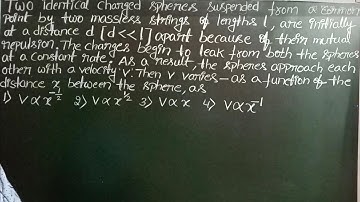 Two identical charged spheres suspended from a common
point by two massless strings of lengths l, are initially
at a distance d [d<<l] apart because of their mutual
repulsion. The charges begin to leak from both the spheres
at a constant rate. As a result, the spheres approach each
other with a velocity v. Then v varies as a function of the
distance x between the sphere, as
1) v ∝ x^-1/2 2) v ∝ x^1/2 3) v ∝ x 4) v ∝ x^-1